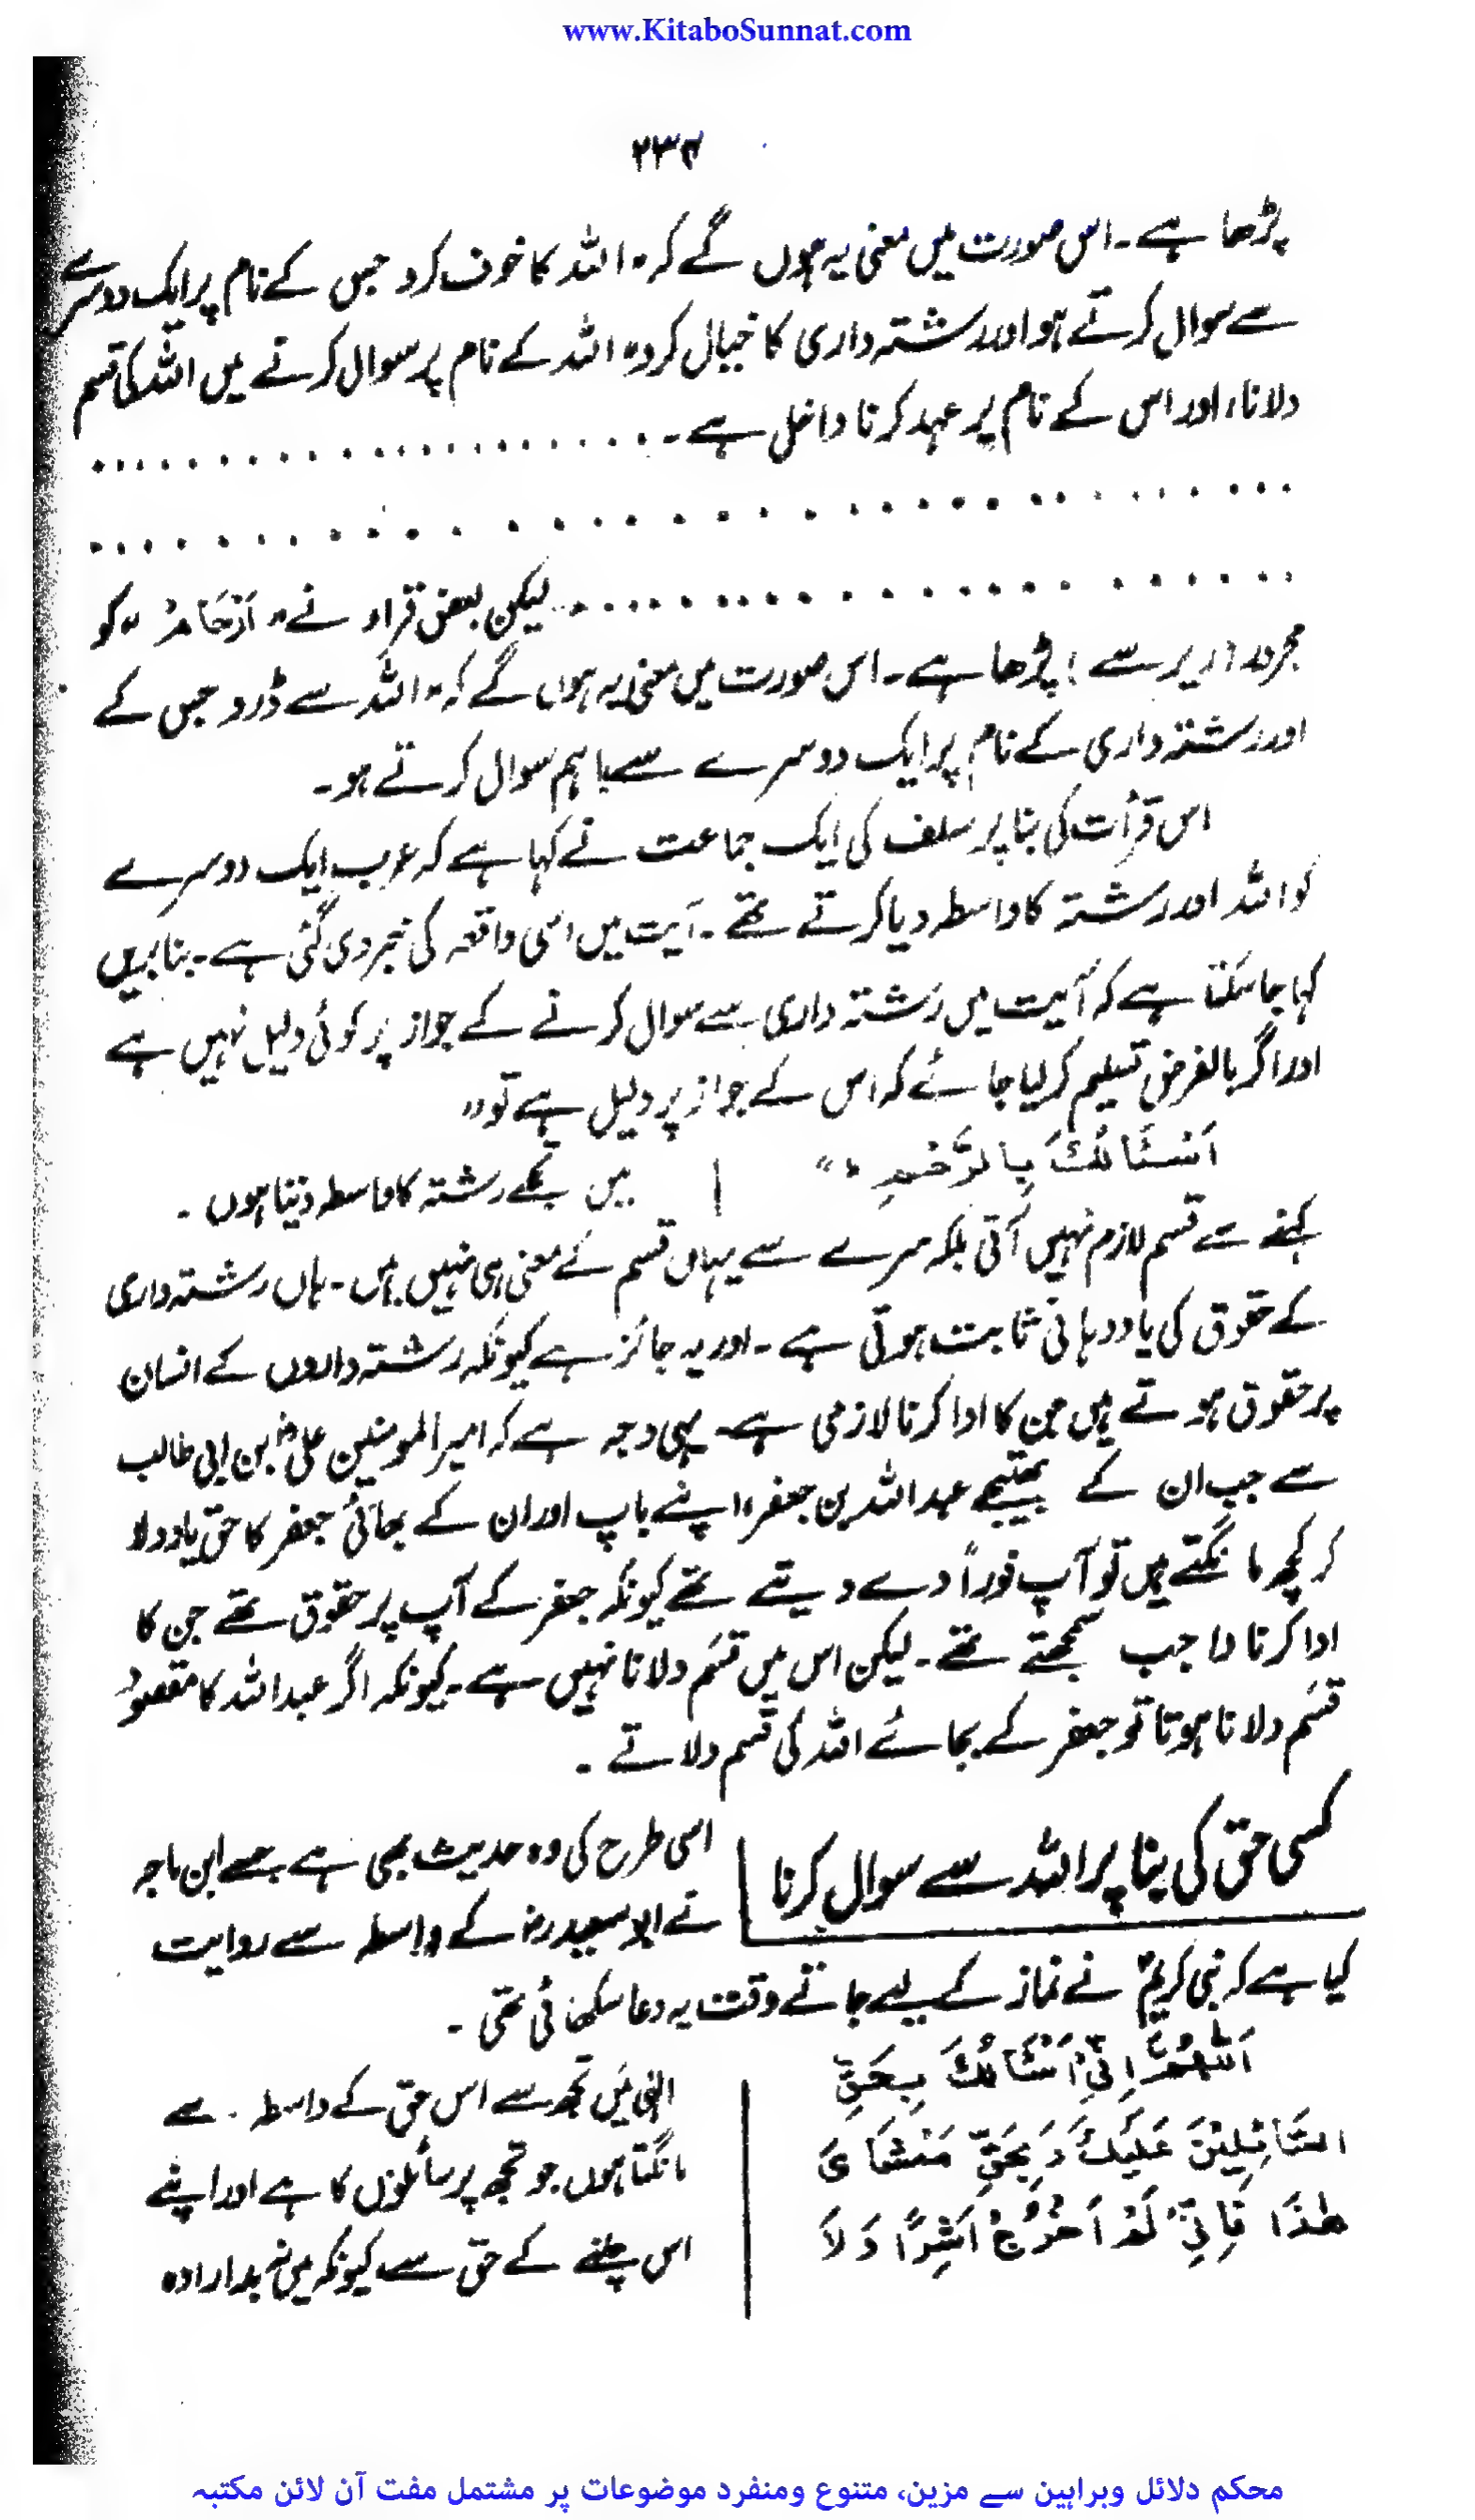 www.KitaboSunnat.com
پڑھا ہے۔ اس صورت میں معنی یہ ہوں گے کہ "اللہ کا خوف کرو جس کے نام پر ایک دوسرے
سے سوال کرتے ہو اور رشتہ داری کا خیال کرو" اللہ کے نام پر سوال کرنے میں اللہ کی قسم
دلانا، اور اس کے نام پر عہد کرنا داخل ہے۔ . . . . . . . . . . . . . . . . . . . .
. . . . . . . . . . . . . . . . . . . . . . . . . . . . . . . . .
. . . . . . . . . . . . . . . . . . . . لیکن بعض قراء نے "اَرْحَامِ" کو
مجرور (زیر سے) پڑھا ہے۔ اس صورت میں معنی یہ ہوں گے کہ "اللہ سے ڈرو جس کے
اور رشتہ داری کے نام پر ایک دوسرے سے باہم سوال کرتے ہو۔
اس قرأت کی بنا پر سلف کی ایک جماعت نے کہا ہے کہ عرب ایک دوسرے
کو اللہ اور رشتہ کا واسطہ دیا کرتے تھے۔ آیت میں اسی واقعہ کی خبر دی گئی ہے۔ بنابریں
کہا جا سکتا ہے کہ آیت میں رشتہ داری سے سوال کرنے کے جواز پر کوئی دلیل نہیں ہے
اور اگر بالفرض تسلیم کر لیا جائے کہ اس کے جواز پر دلیل ہے تو "
اَسْئَالُكَ بِالرَّحْمِ ۔" | میں تجھے رشتہ کا واسطہ دیتا ہوں۔
کہنے سے قسم لازم نہیں آتی بلکہ سرے سے یہاں قسم کے معنی ہی نہیں ہیں۔ ہاں رشتہ داری
کے حقوق کی یاد دہانی ثابت ہوتی ہے۔ اور یہ جائز ہے کیونکہ رشتہ داروں کے انسان
پر حقوق ہوتے ہیں جن کا ادا کرنا لازمی ہے۔ یہی وجہ ہے کہ امیرالمومنین علیؓ بن ابی طالب
سے جب ان کے بھتیجے عبداللہ بن جعفر، اپنے باپ اور ان کے بھائی جعفر کا حق یاد دلا
کر کچھ مانگتے ہیں تو آپ فوراً دے دیتے تھے کیونکہ جعفر کے آپ پر حقوق تھے جن کا
ادا کرنا واجب سمجھتے تھے۔ لیکن اس میں قسَم دلانا نہیں ہے۔ کیونکہ اگر عبداللہ کا مقصود
قسَم دلانا ہوتا تو جعفر کے بجائے اللہ کی قسم دلاتے۔
کسی حق کی بنا پر اللہ سے سوال کرنا
اسی طرح کی وہ حدیث بھی ہے جسے ابن ماجہ
نے ابو سعیدرضؓ کے واسطہ سے روایت
کیا ہے کہ نبی کریمؐ نے نماز کے لیے جاتے وقت یہ دعا سکھائی تھی۔
اَللّٰھُمَّ اِنِّیْ اَسْئَالُكَ بِحَقِّ
السَّائِلِیْنَ عَلَیْكَ وَبِحَقِّ مَمْشَایَ
ھٰذَا فَاِنِّیْ لَمْ اَخْرُجْ اَشِرًا وَلَا
الٰہی میں تجھ سے اس حق کے واسطہ سے
مانگتا ہوں جو تجھ پر سائلوں کا ہے اور اپنے
اس چلنے کے حق سے کیونکہ میں نہ بد ارادہ
محکم دلائل وبراہین سے مزین، متنوع ومنفرد موضوعات پر مشتمل مفت آن لائن مکتبہ